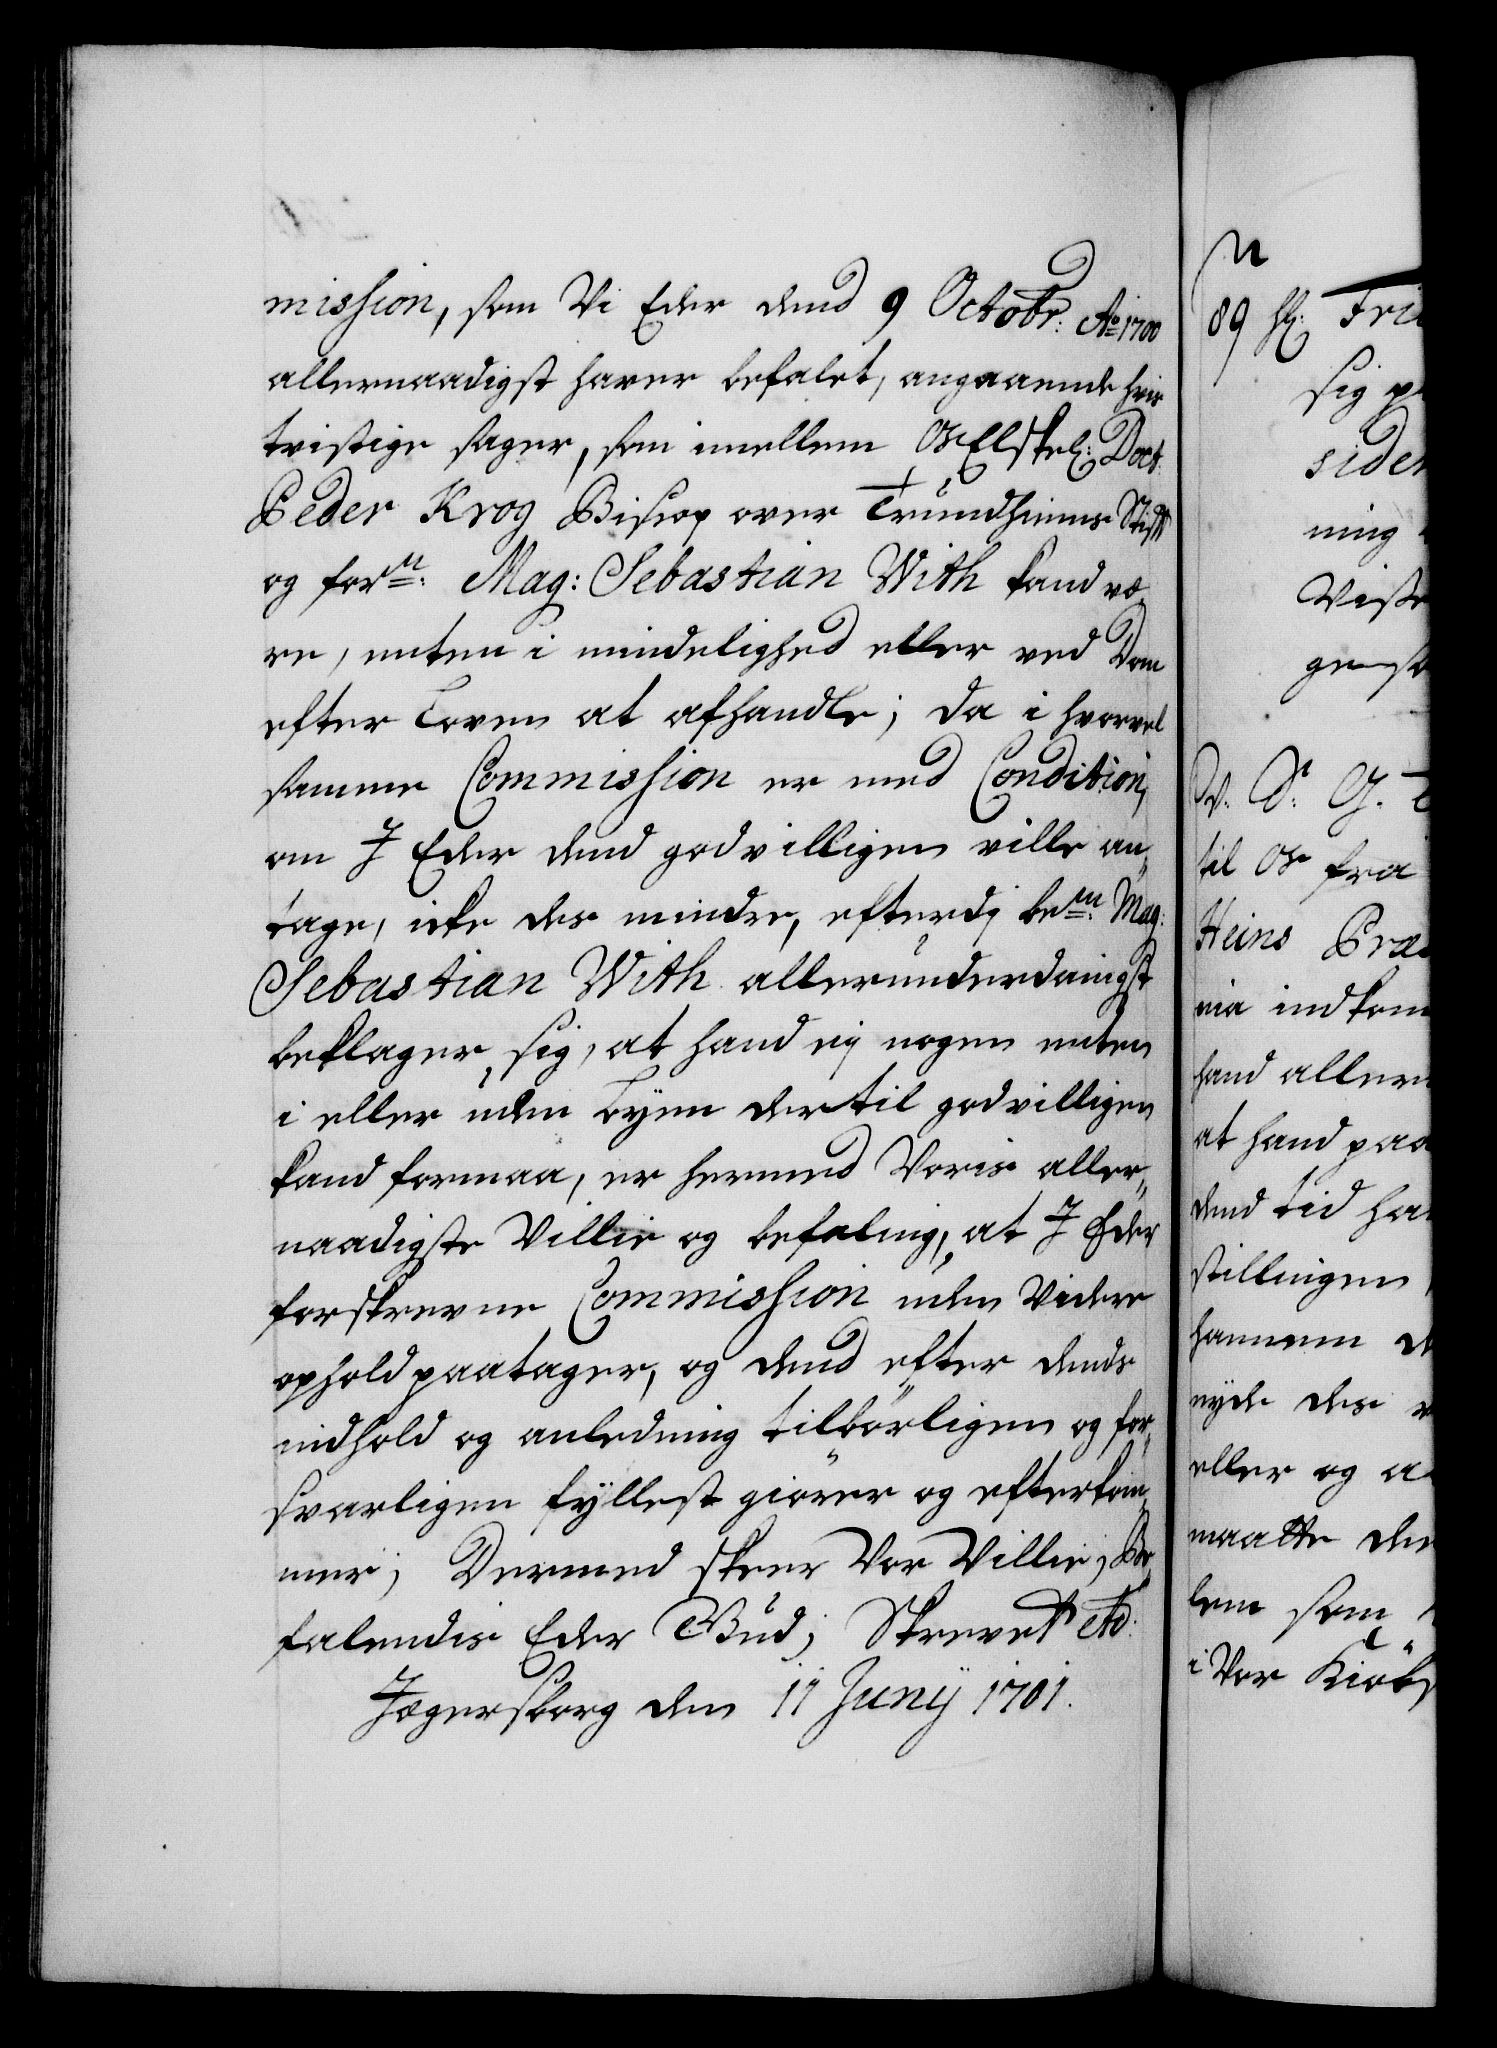 mission, som Vi Eder dend 9 Octobr: Ao 1700
allernaadigst haver befalet, angaaende hvis
tvistige sager, som imellem Os Elskel: Doct.
Peder Krog Biscop over Trundhiems Stift
og forn: Mag: Sebastian With kand væ,
re, enten i mindelighed eller ved Dom
efter Loven at afhandle; da i hvorvel
samme Commission er med Condition,
om I Eder dend godvilligen ville an,
tage, icke des mindre, efterdj bem: Mag:
Sebastian With allerunderdanigst
beklager sig, at hand ej nogen enten
i eller uden Byen dertil godvilligen
kand formaa, er hermed Voris aller,
naadigste Villie og befaling, at I Eder
forskrevne Commission uden Videre
ophold paatager, og dend efter dends
indhold og anledning tilbørligen og for,
svarligen fyllest giører og efterkom,
mer; Dermed skeer Vor Villie, Be,
falendis Eder Gud; Skrevet etc:
Jægersborg den 11 Junij 1701.
n
89 H: Fri
sig p
siden
ning
Viste
gensk
V. S: G. T
til Os fra
Heins Præ
nia indkom
hand aller
at hand paa
dend tid ha
stillingen
hannem d
nyde des
eller og a
maatte den
lem som
i Vor Kiøb